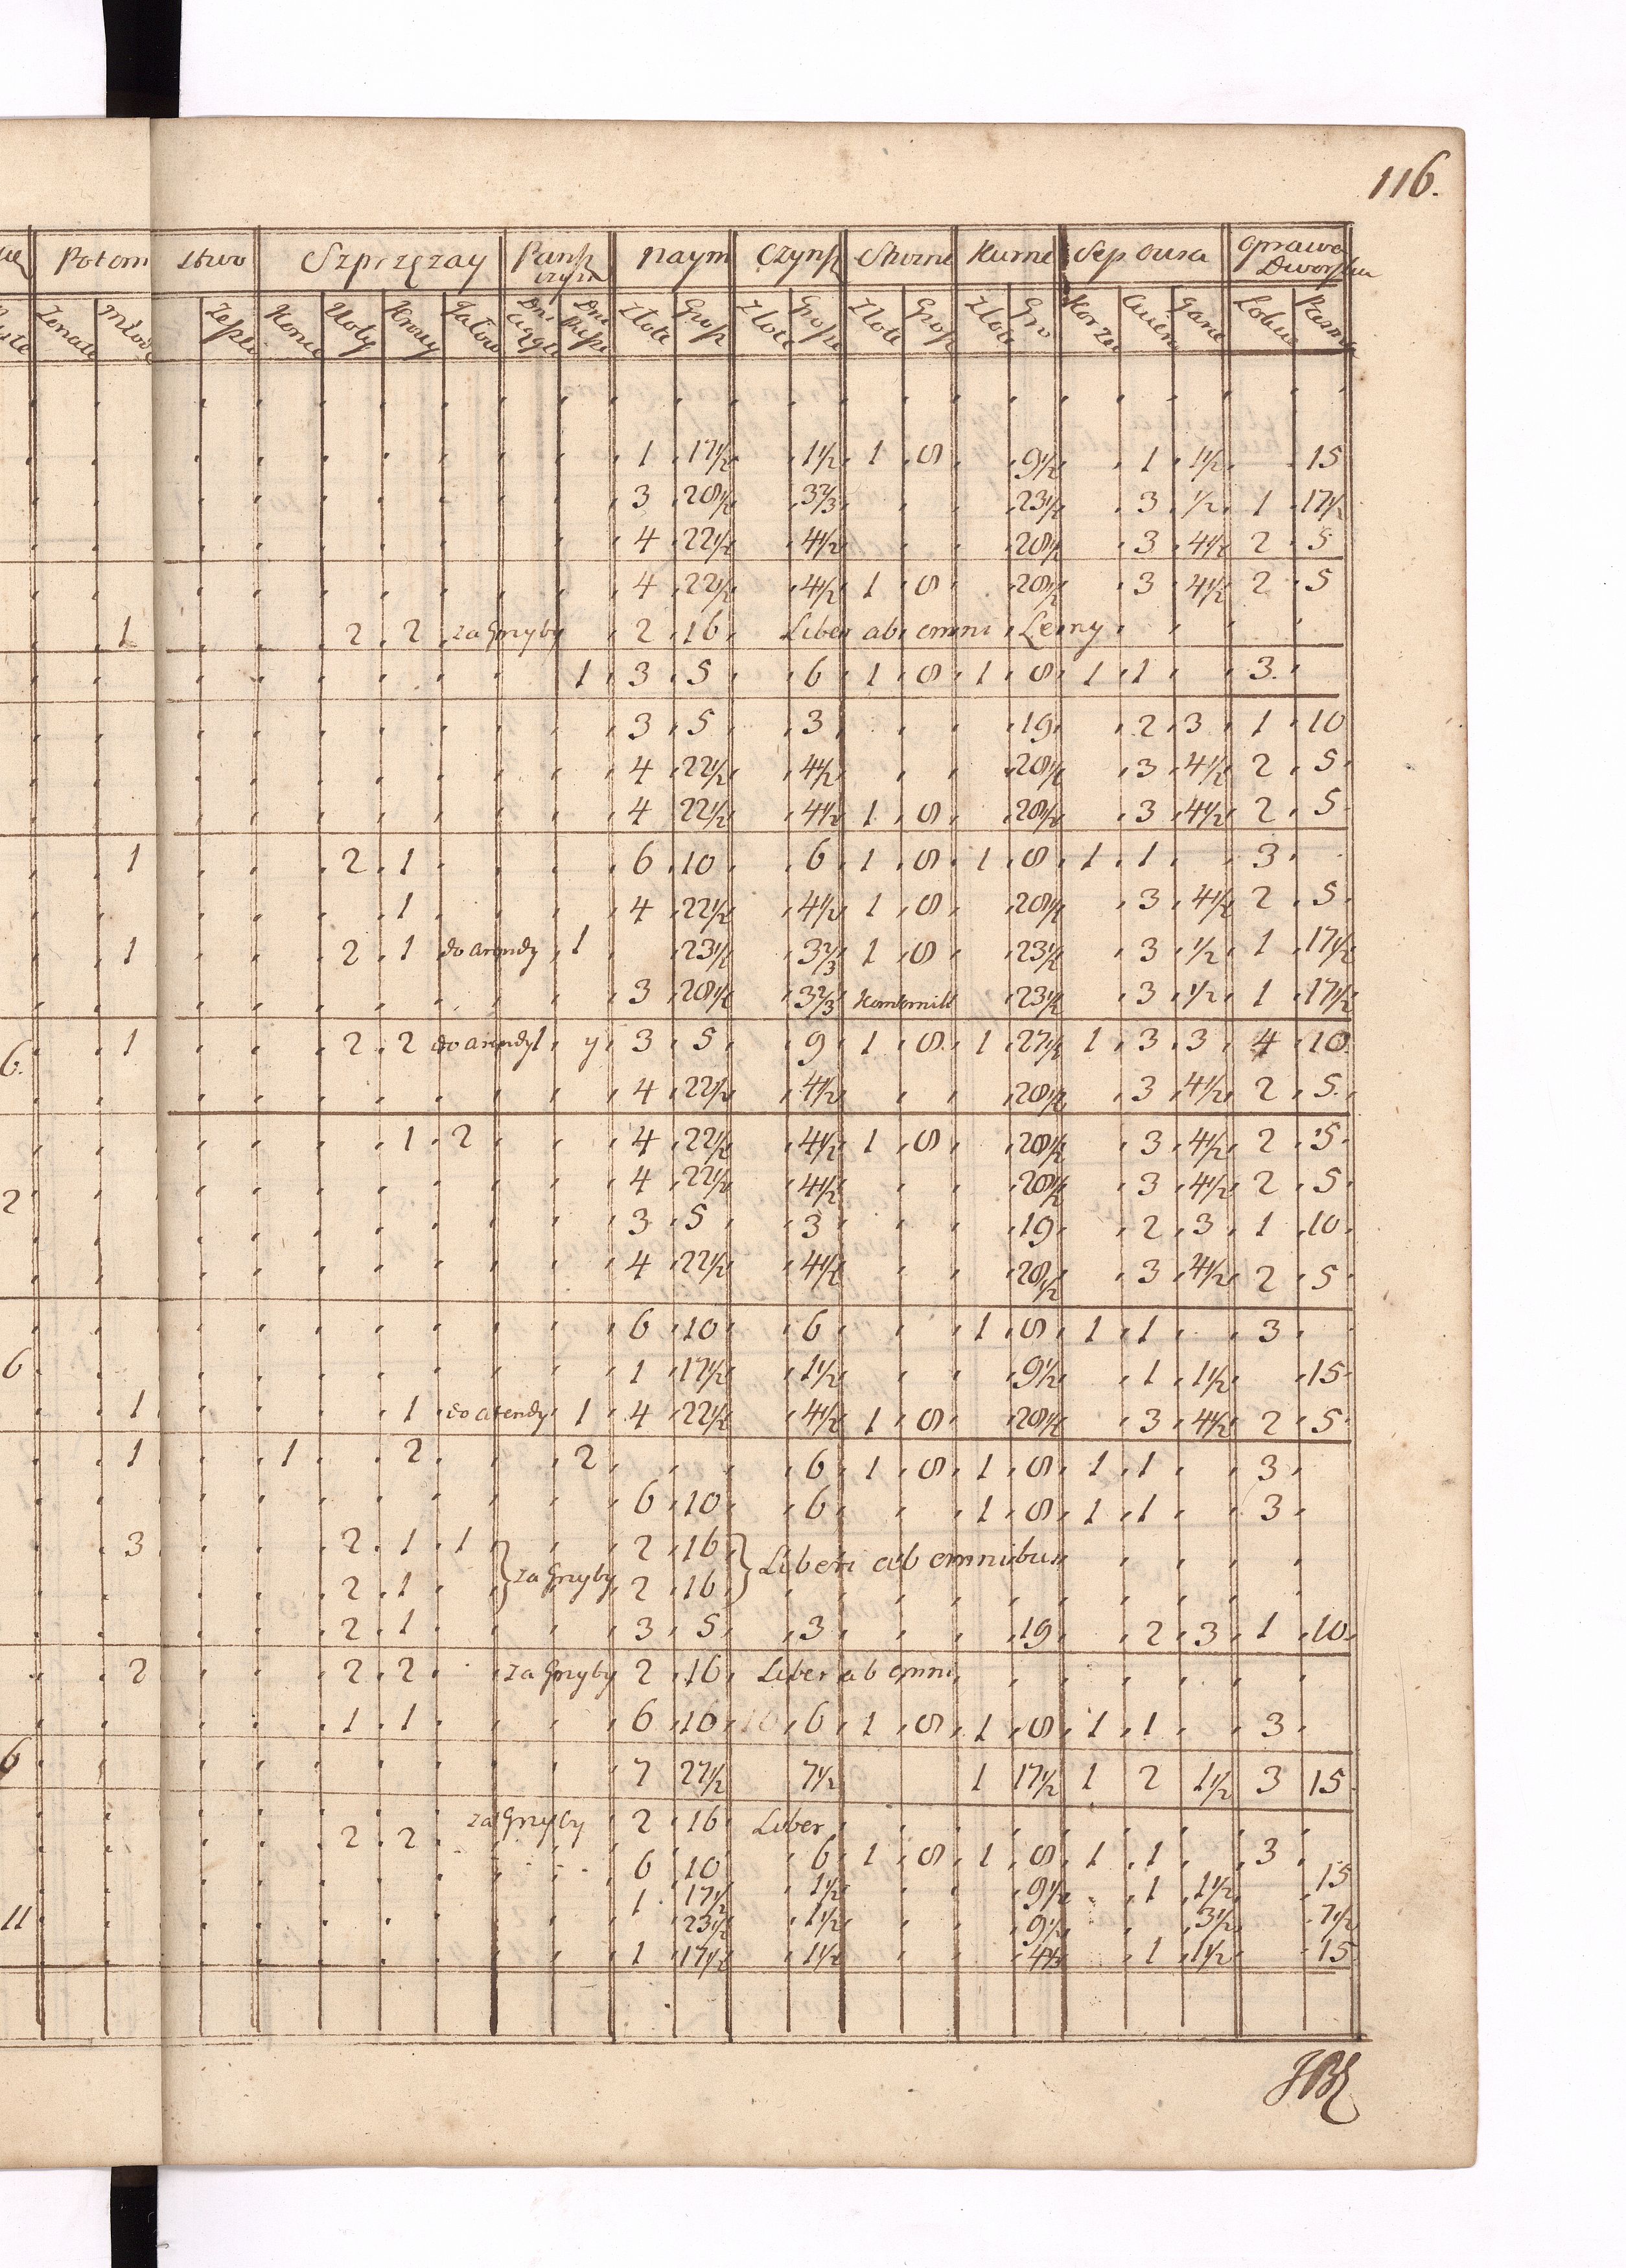 116.
Potom stwo Szprzęzay Pańsz czyzn naym Czynsz Stróżne Kurne Sep Owsa Oprawa Dworska
Zonate Młode Zeple Konie Woły Krowy Jałow Dni Ciągłe Dni piesze Złote Grosz Złote Grosze Złote Grosz Złote Gro Korze Cwier Garc
1 17½ 1½ 1 8 9½ 1 1½ 15
3 28½ 3⅔ 23½ 3 ½ 1 17½
4 22½ 4½ 28½ 3 4½ 2 5
4 22½ 4½ 1 8 28½ 3 4½ 2 5
1 2 2 za Grzyby 2 16 Liber ab omni
1 3 5 6 1 8 1 8 1 1 3
3 5 3 19 2 3 1 10
4 22½ 4½ 28½ 3 4½ 2 5
4 22½ 4½ 1 8 28½ 3 4½ 2 5
1 2 1 6 10 6 1 8 1 8 1 1 3
1 4 22½ 4½ 1 8 28½ 3 4½ 2 5
1 2 1 do arendy 1 23½ 3⅔ 1 8 23½ 3 ½ 1 17½
3 28½ 3⅔ 23½ 3 ½ 1 17½
6 1 2 2 do arendy 1 y 3 5 9 1 8 1 27½ 1 3 3 4 10
4 22½ 4½ 28½ 3 4½ 2 5
1 2 4 22½ 4½ 1 8 28½ 3 4½ 2 5
2 4 22½ 4½ 28½ 3 4½ 2 5
3 5 3 19 2 3 1 10
4 22½ 4½ 28½ 3 4½ 2 5
6 10 6 1 8 1 1 3
6 1 17½ 1½ 9½ 1 1½ 15
1 1 do arendy 1 4 22½ 4½ 1 8 28½ 3 4½ 2 5
1 1 2 2 6 1 8 1 8 1 1 3
6 10 6 1 8 1 1 3
3 2 1 1 2 16
za Grzyby Liberi ab omnibus
2 1 2 16
2 1 3 5 3 19 2 3 1 10
2 2 2 za Grzyby 2 16 Liber ab omni
1 1 6 10 6 1 8 1 8 1 1 3
6 7 27½ 7½ 1 17½ 1 2 1½ 3 15
2 2 za Grzyby 2 16 Liber
6 10 6 1 8 1 8 1 1 3
1 17½ 1½ 9½ 1 1½ 15
11 23½ 1½ 9½ 3½ 7½
1 17½ 1½ 1 1½ 15